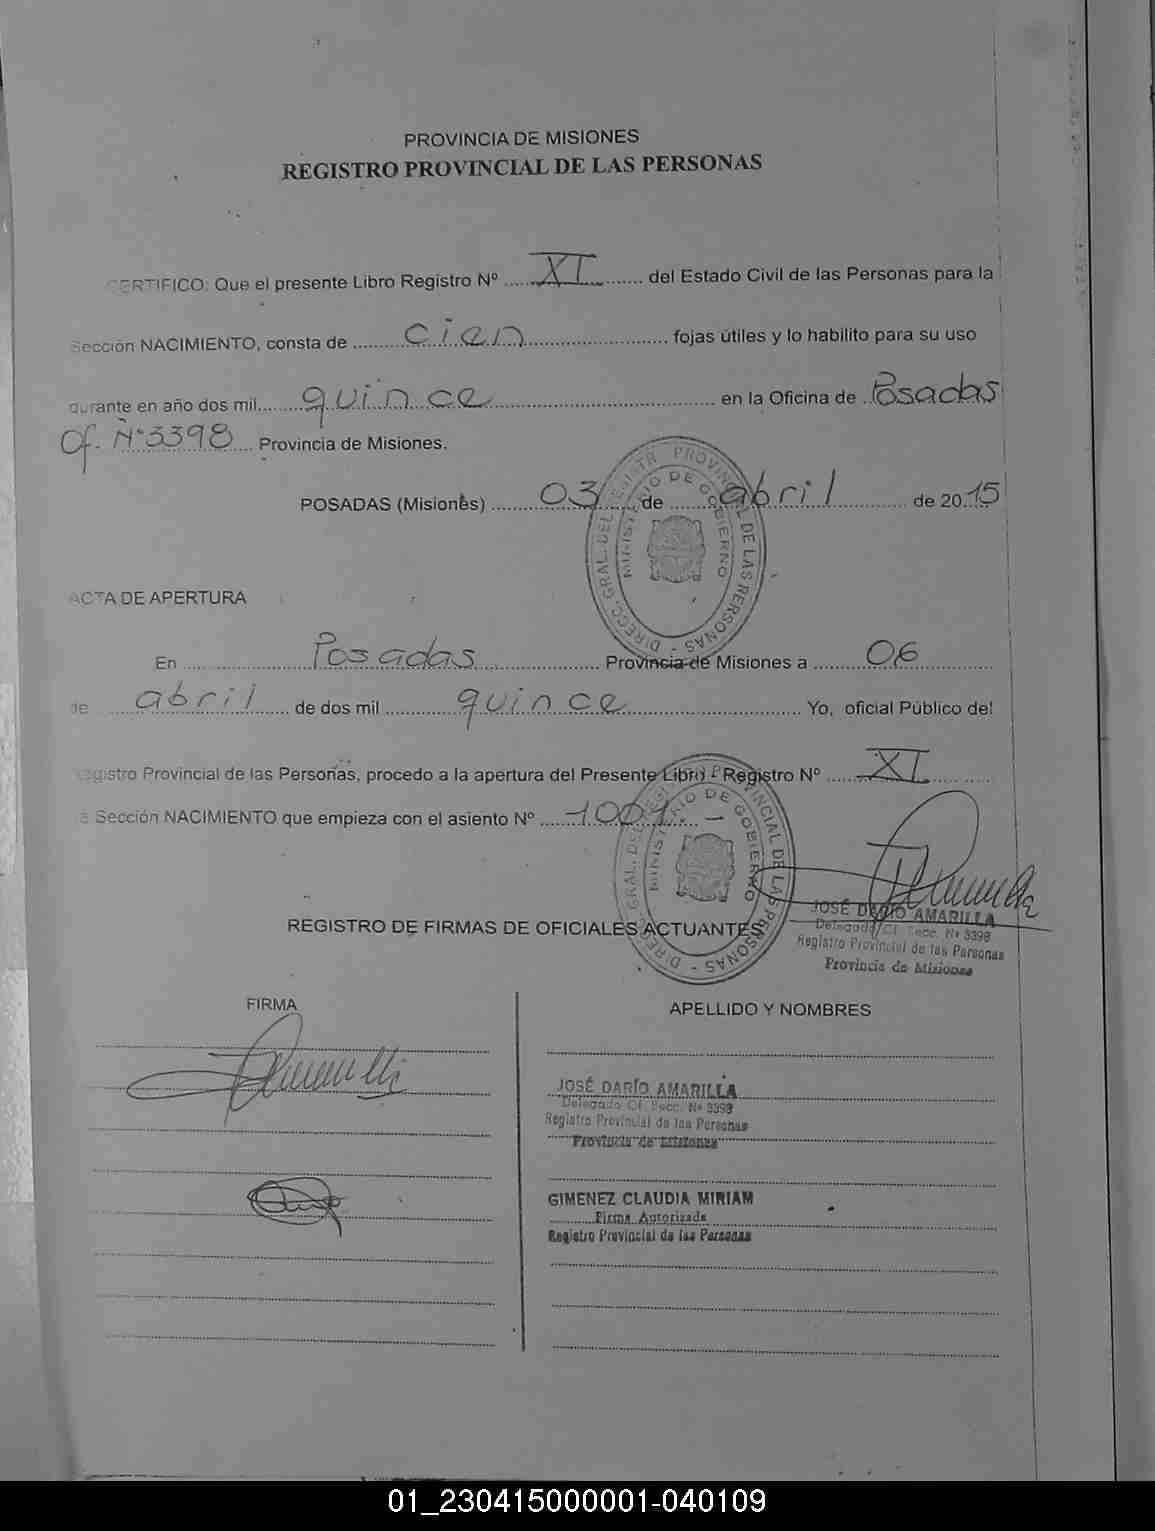 PROVINCIA DE MISIONES
REGISTRO PROVINCIAL DE LAS PERSONAS
CERTIFICO: Que el presente Libro Registro Nº ...... XI ...... del Estado Civil de las Personas para la
Sección NACIMIENTO, consta de ...... cien ...... fojas útiles y lo habilito para su uso
durante en año dos mil ...... quince ...... en la Oficina de ... Posadas
Of. Nº 3398 .... Provincia de Misiones.
POSADAS (Misiones) ...... 03 ...... de ...... abril ...... de 20..15
DIRECC. GRAL. DEL REGISTR. PROVINCIAL DE LAS PERSONAS -
MINISTERIO DE GOBIERNO
ACTA DE APERTURA
En ...... Posadas ...... Provincia de Misiones a ...... 06 ......
de ...... abril ...... de dos mil ...... quince ...... Yo, oficial Público del
Registro Provincial de las Personas, procedo a la apertura del Presente Libro - Registro Nº ...... XI ......
a Sección NACIMIENTO que empieza con el asiento Nº ...... 1001. —
DIRECC. GRAL. DEL REGISTR. PROVINCIAL DE LAS PERSONAS -
MINISTERIO DE GOBIERNO
JOSÉ DARÍO AMARILLA
Delegado Of. Secc. Nº 3398
Registro Provincial de las Personas
Provincia de Misiones
REGISTRO DE FIRMAS DE OFICIALES ACTUANTES
FIRMA
APELLIDO Y NOMBRES
JOSÉ DARÍO AMARILLA
Delegado Of. Secc. Nº 3398
Registro Provincial de las Personas
Provincia de Misiones
GIMENEZ CLAUDIA MIRIAM
Firma Autorizada
Registro Provincial de las Personas
01_230415000001-040109